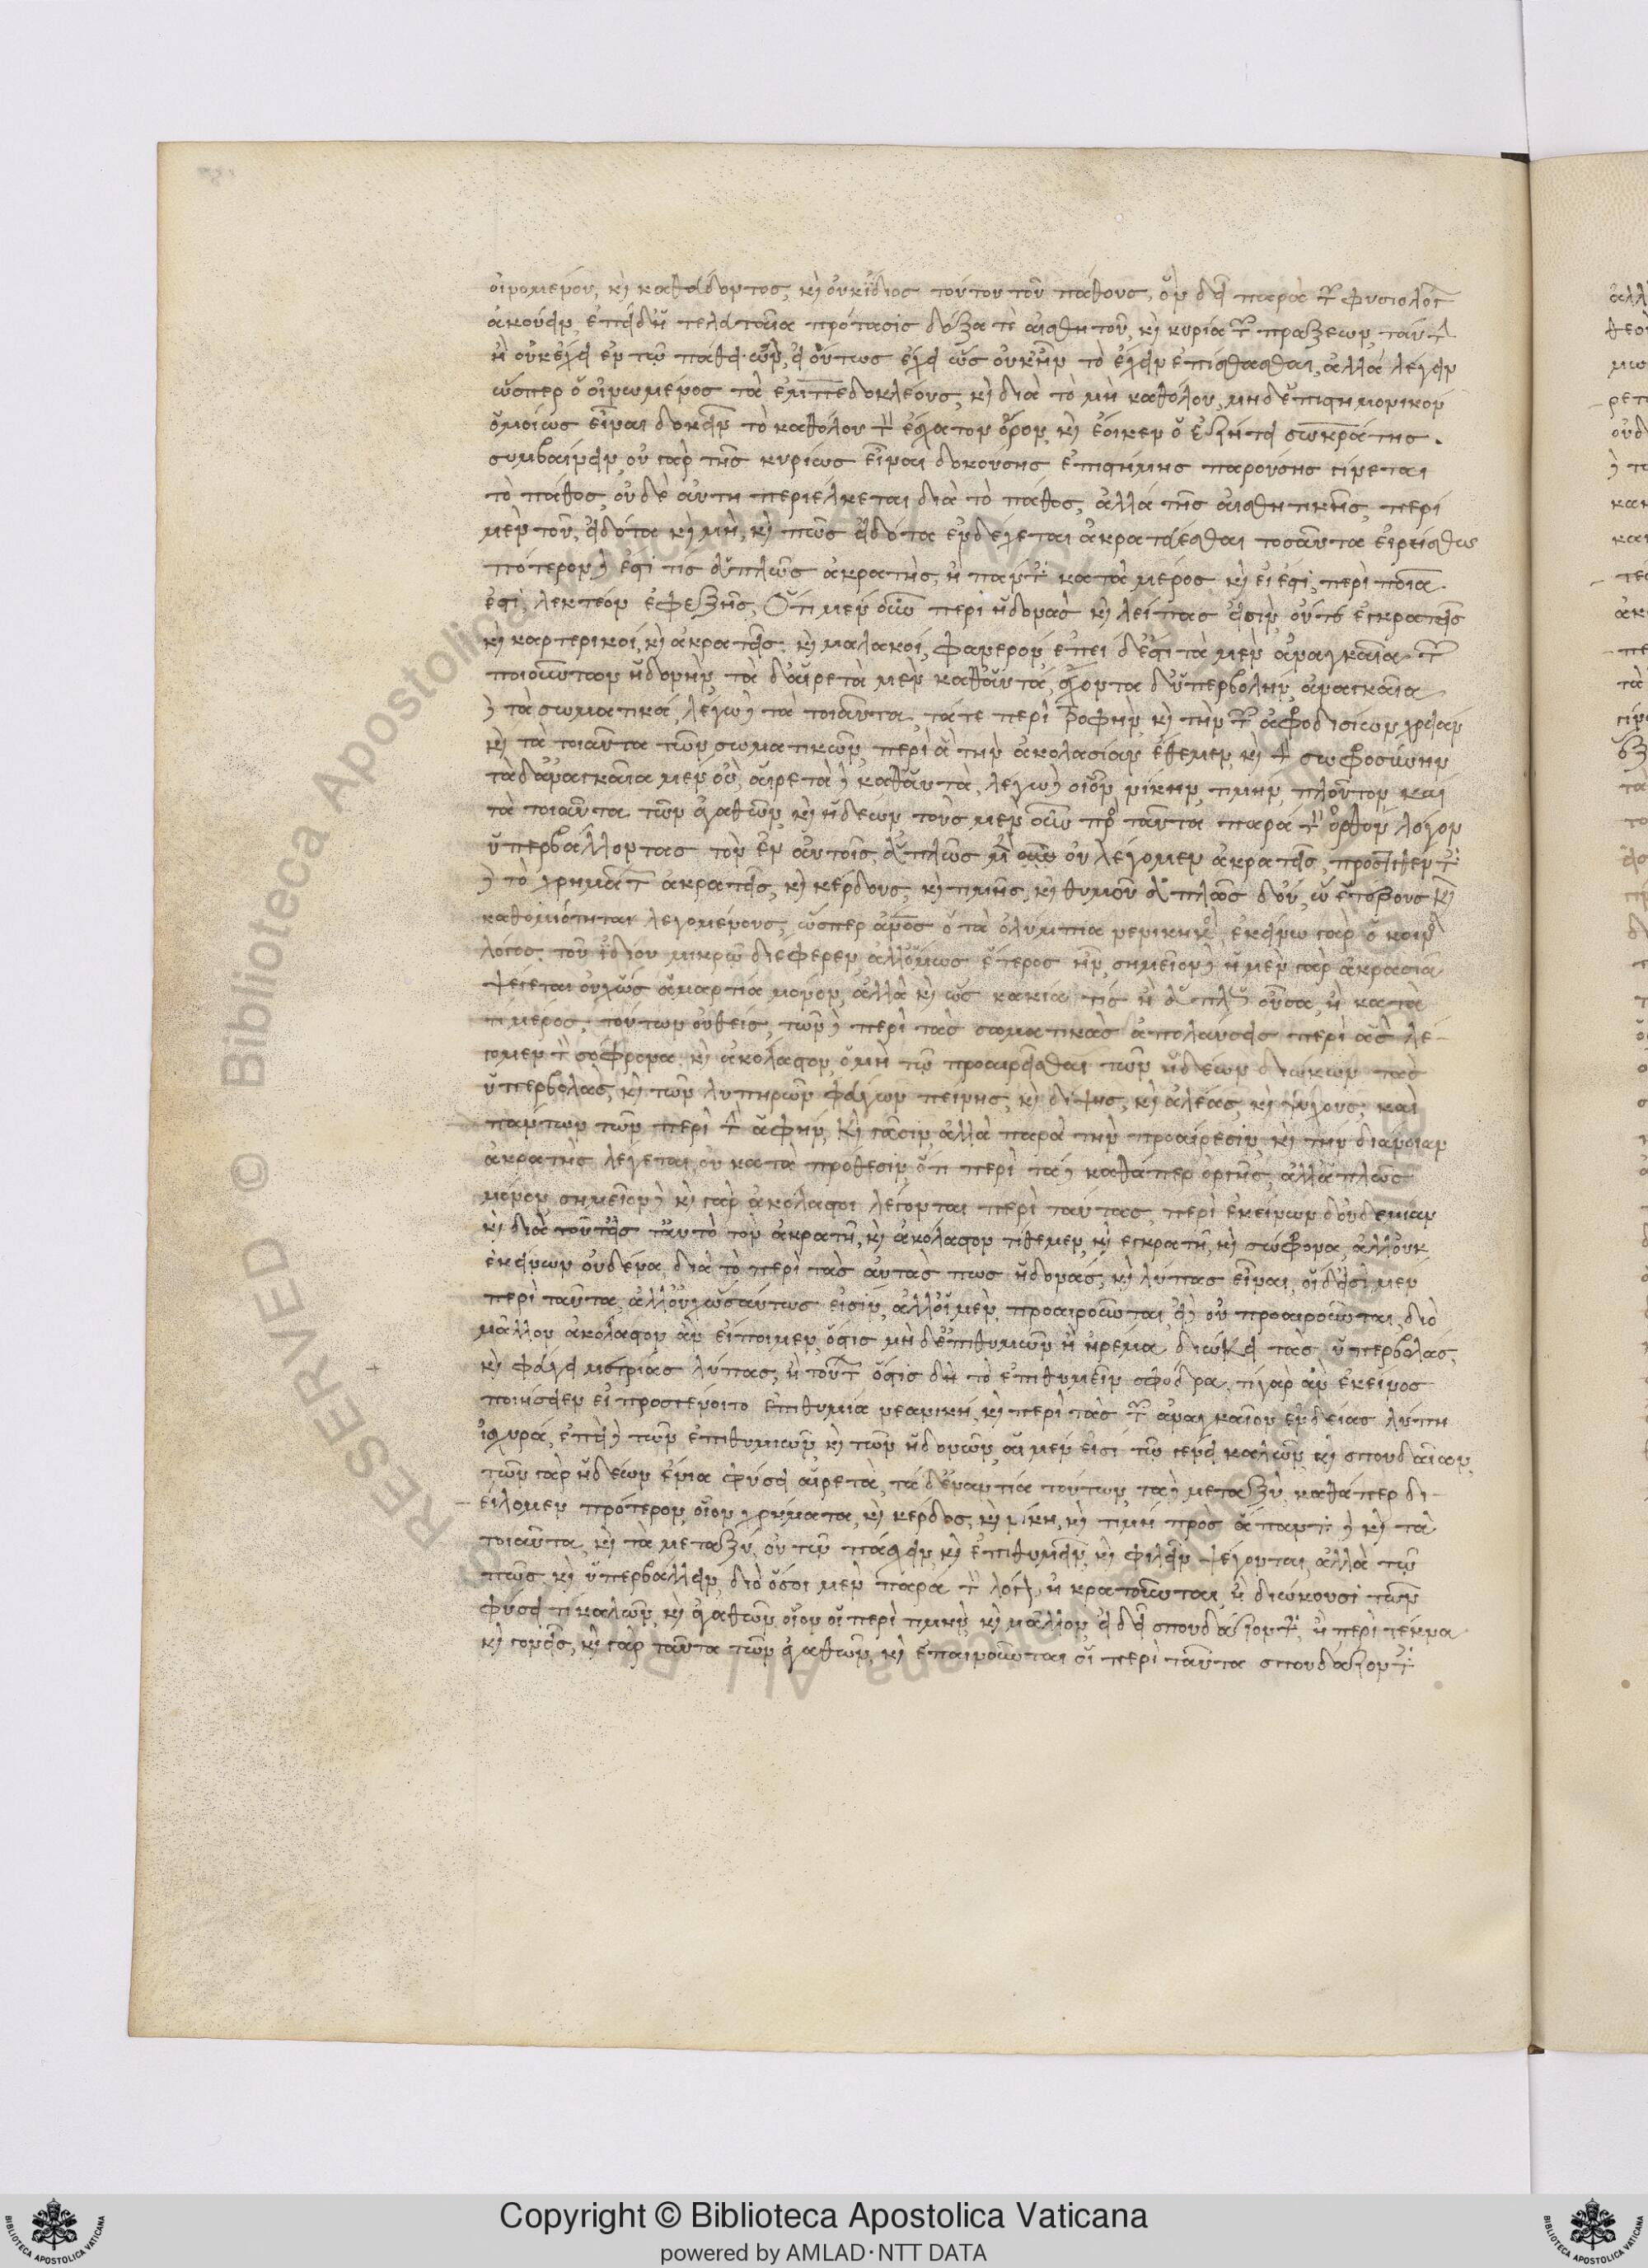 οἰνομένου, καὶ καθεύδοντος, καὶ οὐκ ἴδιος τούτου τοῦ πάθους, ὃν δεῖ παρὰ τῶν φυσιολόγων
ἀκούειν, ἐπεὶ δ' ἡ τελευταία πρότασις δόξα τὲ αἰσθητοῦ, καὶ κυρία τῶν πράξεων, ταύτην
ἢ οὐκ ἔχει ἐν τῷ πάθει ὤν, ἢ οὕτως ἔχει ὡς οὐκ ἦν τὸ ἔχειν ἐπίστασθαι, ἀλλὰ λέγειν
ὥσπερ ὁ οἰνωμένος τὰ ἐμπεδοκλέους, καὶ διὰ τὸ μὴ καθόλου, μηδ' ἐπιστημονικὸν
ὁμοίως εἶναι δοκεῖν τὸ καθόλου τὸν ἔσχατον ὅρον, καὶ ἔοικεν ὃ ἐζήτει σωκράτης.
συμβαίνειν, οὐ γὰρ τῆς κυρίως εἶναι δοκούσης ἐπιστήμης παρούσης γίνεται
τὸ πάθος, οὐδὲ αὕτη περιέλκεται διὰ τὸ πάθος, ἀλλὰ τῆς αἰσθητικῆς, περὶ
μὲν τοῦ εἰδότα καὶ μὴ, καὶ πῶς εἰδότα ἐνδέχεται ἀκρατεύεσθαι τοσαῦτα εἰρήσθω
πότερον δὲ ἐστί τις ἁπλῶς ἀκρατὴς, ἢ πάντες κατὰ μέρος καὶ εἰ ἐστὶ, περὶ ποῖα
ἐστὶ, λεκτέον ἐφεξῆς, Ὅτι μὲν οὖν περὶ ἡδονὰς καὶ λύπας εἰσὶν οὕτε ἐγκρατεῖς
καὶ καρτερικοί, καὶ ἀκρατεῖς καὶ μαλακοί, φανερόν, ἐπεὶ δ' ἐστὶ τὰ μὲν ἀναγκαῖα τῶν
ποιούντων ἡδονήν, τὰ δ' αἱρετὰ μὲν καθ' αὑτά, ἔχοντα δ' ὑπερβολήν, ἀναγκαῖα
δὲ τὰ σωματικά, λέγω δὲ τὰ τοιαῦτα, τά τε περὶ τροφὴν καὶ τὴν τῶν ἀφροδισίων χρείαν
καὶ τὰ τοιαῦτα τῶν σωματικῶν, περὶ ἃ τὴν ἀκολασίαν ἔθεμεν, καὶ τὴν σωφροσύνην
τὰ δ' ἀναγκαῖα μὲν οὐ, αἱρετὰ δὲ καθ' αὑτὰ, λέγω δὲ οἷον νίκην, τιμήν, πλοῦτον καὶ
τὰ τοιαῦτα τῶν ἀγαθῶν, καὶ ἡδέων τοὺς μὲν οὖν πρὸς ταῦτα παρὰ τὸν ὀρθὸν λόγον
ὑπερβάλλοντας τὸν ἐν αὑτοῖς, ἁπλῶς μὲν οὖν οὐ λέγομεν ἀκρατεῖς, προστιθέντες
δὲ τὸ χρημάτων ἀκρατεῖς, καὶ κέρδους, καὶ τιμῆς, καὶ θυμοῦ ἁπλῶς δ' οὔ, ὡς ἑτέρους καὶ
καθ' ὁμοιότητα λεγομένους, ὥσπερ ἄνθρωπος ὁ τὰ ὀλύμπια νενικηκώς, ἐκείνῳ γὰρ ὁ κοινὸς
λόγος τοῦ ἰδίου μικρῶ διέφερεν, ἀλλ' ὅμως ἕτερος ἦν, σημεῖον δὲ ἡ μὲν γὰρ ἀκρασία
ψέγεται οὐχ ὡς ἁμαρτία μόνον, ἀλλὰ καὶ ὡς κακία τίς ἢ ἁπλῶς οὖσα, ἢ κατὰ
τὶ μέρος, τούτων οὐθείς, τῶν δὲ περὶ τὰς σωματικὰς ἀπολαύσεις περὶ ἃς λέ-
γομεν τὸν σώφρονα καὶ ἀκόλαστον, ὁ μὴ τῷ προαιρεῖσθαι τῶν ἡδέων διώκων τὰς
ὑπερβολὰς, καὶ τῶν λυπηρῶν φεύγων πείνης, καὶ δίψης, καὶ ἀλέας, καὶ ψύχους, καὶ
πάντων τῶν περὶ τὴν ἁφήν, καὶ γεῦσιν ἀλλὰ παρὰ τὴν προαίρεσιν καὶ τὴν διάνοιαν
ἀκρατὴς λέγεται, οὐ κατὰ πρόθεσιν, ὅτι περὶ τάδε καθάπερ ὀργῆς, ἀλλ' ἁπλῶς
μόνον, σημεῖον δὲ καὶ γὰρ ἀκόλαστοι λέγονται περὶ ταύτας, περὶ ἐκείνων δ' οὐδεμίαν
καὶ διὰ τοῦτ' εἰς ταὐτὸ τὸν ἀκρατῆ, καὶ ἀκόλαστον τίθεμεν, καὶ ἐγκρατῆ, καὶ σώφρονα, ἀλλ' οὐκ
ἐκείνων οὐδένα, διὰ τὸ περὶ τὰς αὐτάς πως ἡδονάς, καὶ λύπας εἶναι, οἱ δ' εἰσὶ μὲν
περὶ ταῦτα, ἀλλ' οὐχ ὡσαύτως εἰσίν, ἀλλ' οἱ μὲν προαιροῦνται, οἱ δὲ οὐ προαιροῦνται, διὸ
μᾶλλον ἀκόλαστον ἂν εἴποιμεν, ὅστις μὴ δ' ἐπιθυμῶν ἢ ἠρέμα διώκει τὰς ὑπερβολάς,
καὶ φεύγει μετρίας λύπας, ἢ τοῦτον ὅστις διὰ τὸ ἐπιθυμεῖν σφόδρα, τί γὰρ ἂν ἐκεῖνος
ποιήσειεν εἰ προσγένοιτο ἐπιθυμία νεανική, καὶ περὶ τὰς τῶν ἀναγκαίων ἐνδείας λύπη
ἰσχυρά, ἐπεὶ δὲ τῶν ἐπιθυμιῶν, καὶ τῶν ἡδονῶν, αἱ μὲν εἰσὶ τῷ γένει καλῶν, καὶ σπουδαίων,
τῶν γὰρ ἡδέων ἔνια φύσει αἱρετὰ, τὰ δ' ἐναντία τούτων, τὰ δὲ μεταξὺ, καθάπερ δι-
είλομεν πρότερον, οἷον χρήματα, καὶ κέρδος, καὶ νίκη, καὶ τιμή πρὸς ἅπαντα δὲ καὶ τὰ
τοιαῦτα, καὶ τὰ μεταξύ, οὐ τῷ πάσχειν, καὶ ἐπιθυμεῖν, καὶ φιλεῖν ψέγονται, ἀλλὰ τῷ
πῶς καὶ ὑπερβάλλειν, διὸ ὅσοι μὲν παρὰ τὸν λόγον, ἢ κρατοῦνται, ἢ διώκουσι τῶν
φύσει τι καλῶν, καὶ ἀγαθῶν, οἷον οἱ περὶ τιμὴν, καὶ μᾶλλον, ἢ δεῖ σπουδάζοντες, ἢ περὶ τέκνα
καὶ γονεῖς, καὶ γὰρ ταῦτα τῶν ἀγαθῶν, καὶ ἐπαινοῦνται οἱ περὶ ταῦτα σπουδάζοντες
Copyright © Biblioteca Apostolica Vaticana
powered by AMLAD·NTT DATA